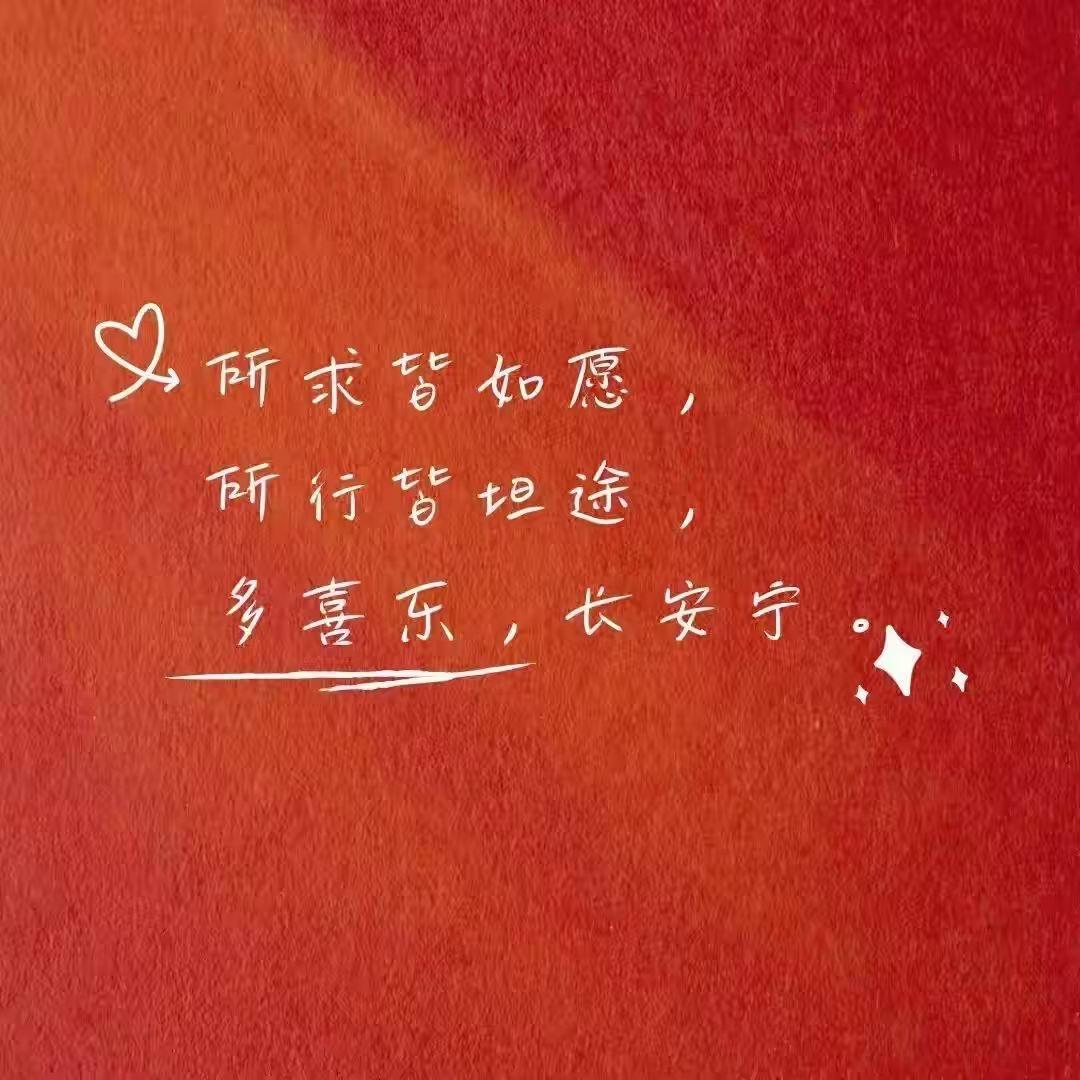 所求皆如愿，
所行皆坦途，
多喜乐，长安宁。